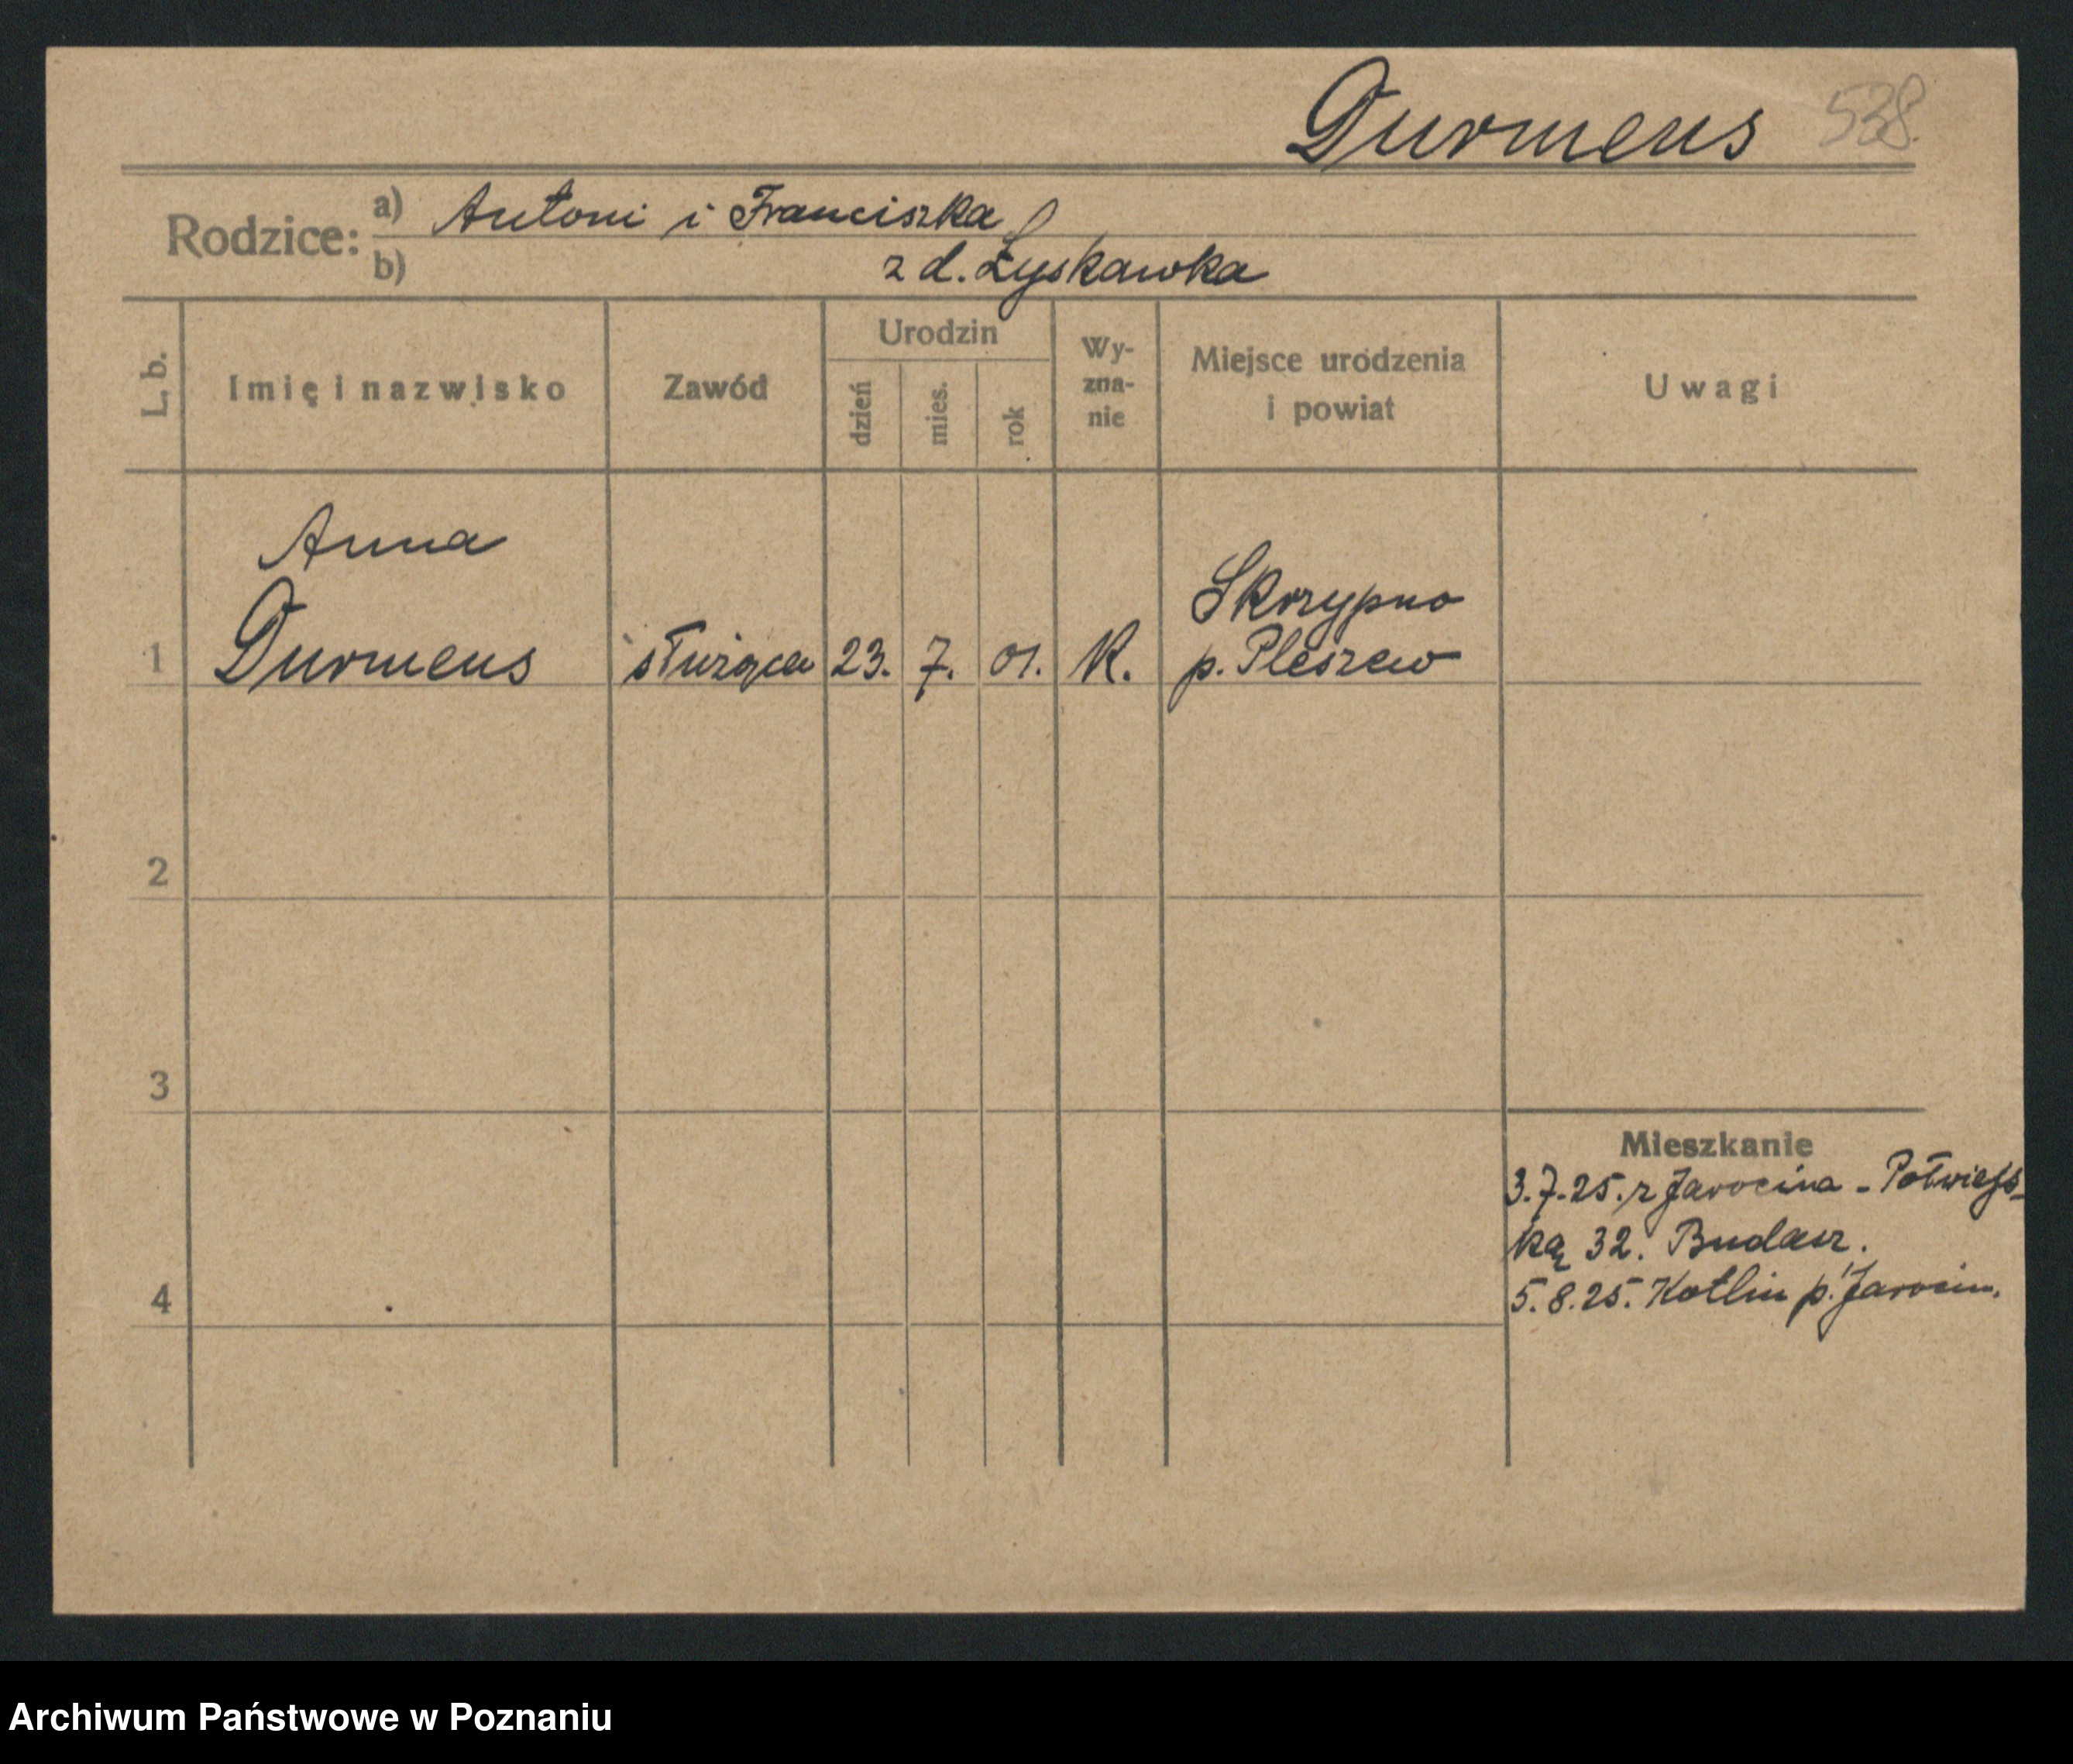 Durmens 538.
Rodzice: a) Antoni i Franciszka
b) z d. Łyskawka
L. b. Imię i nazwisko Zawód Urodzin dzień mies. rok Wy-zna-nie Miejsce urodzenia i powiat Uwagi
Anna
1 Durmens służąca 23. 7. 01. K. Skrzypno
p. Pleszew
2
3
Mieszkanie
3.7.25. z Jarocina - Półwiejs-
ką 32. Budasz.
4 5.8.25. Kotlin p. Jarocin.
Archiwum Państwowe w Poznaniu